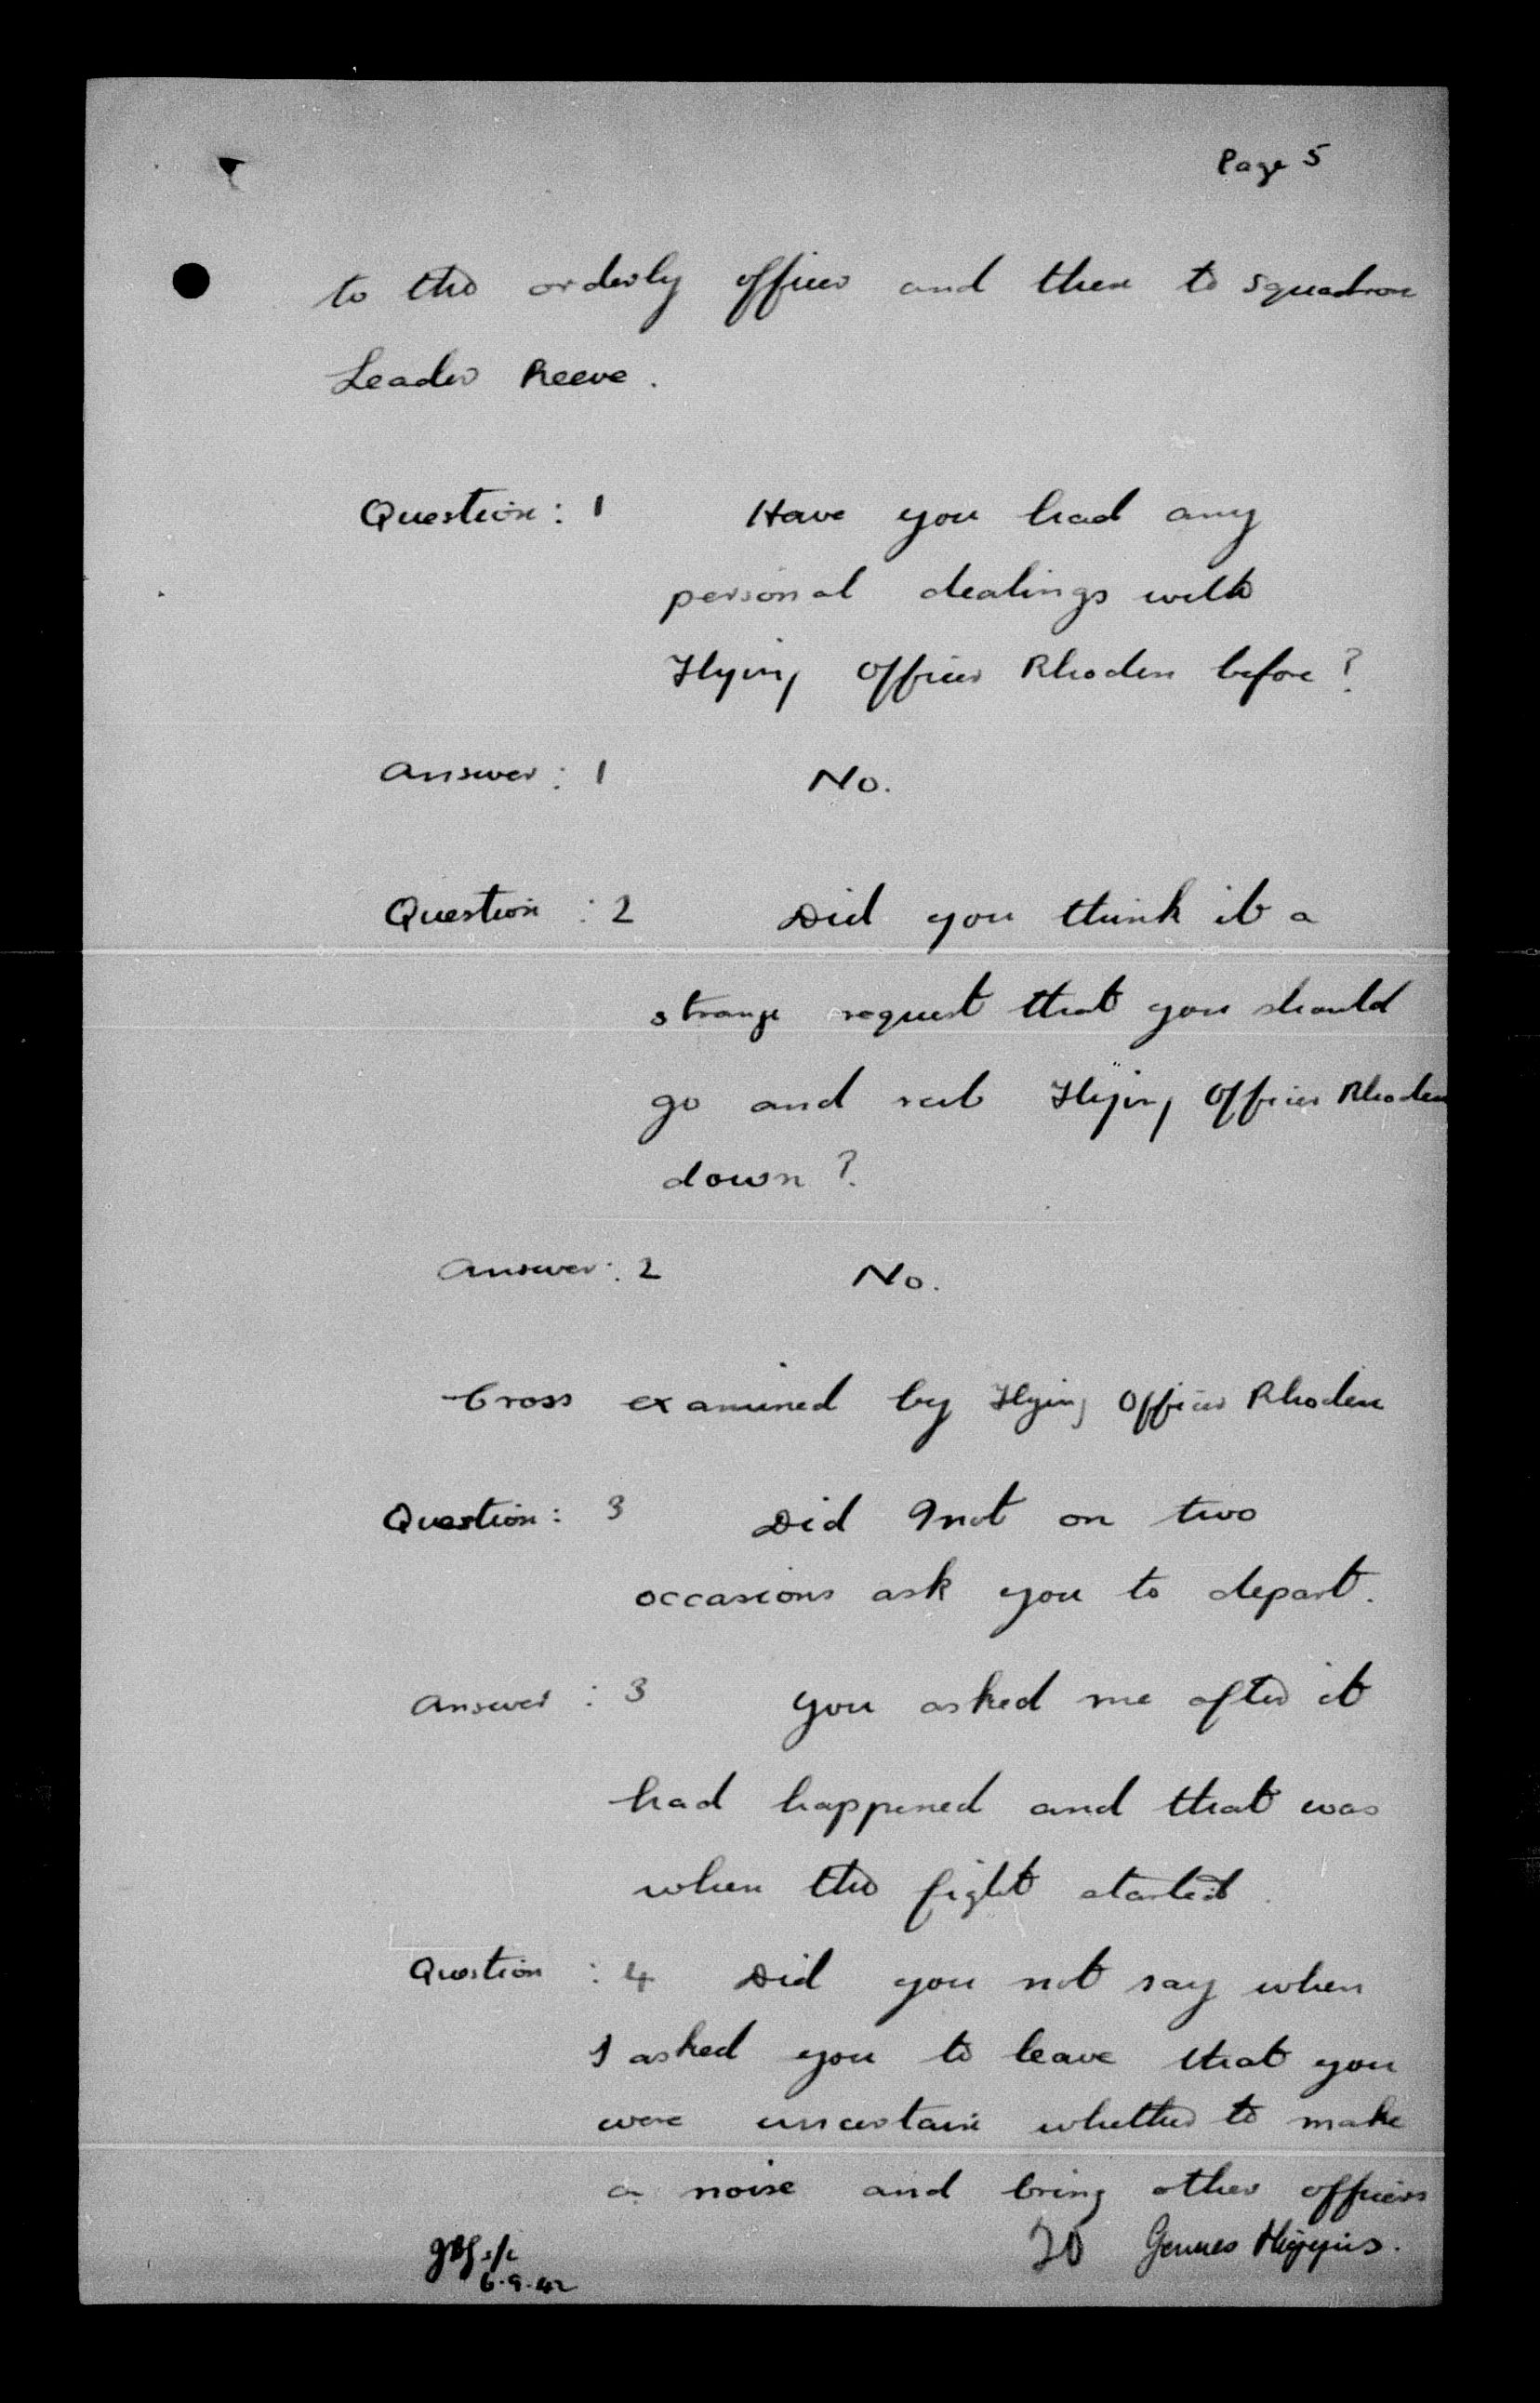 Page 5
to the orderly officer and then to Squadron
Leader Reeve.
Question: 1 Have you had any
personal dealings with
Flying Officer Rhoden before?
Answer: 1 No.
Question: 2 Did you think it a
strange request that you should
go and rub Flying Officer Rhoden
down?
Answer: 2 No.
Cross examined by Flying Officer Rhoden
Question: 3 Did I not on two
occasions ask you to depart.
Answer: 3 You asked me after it
had happened and that was
when the fight started.
Question: 4 Did you not say when
I asked you to leave that you
were uncertain whether to make
a noise and bring other officers
20 James Higgins.
6.9.42